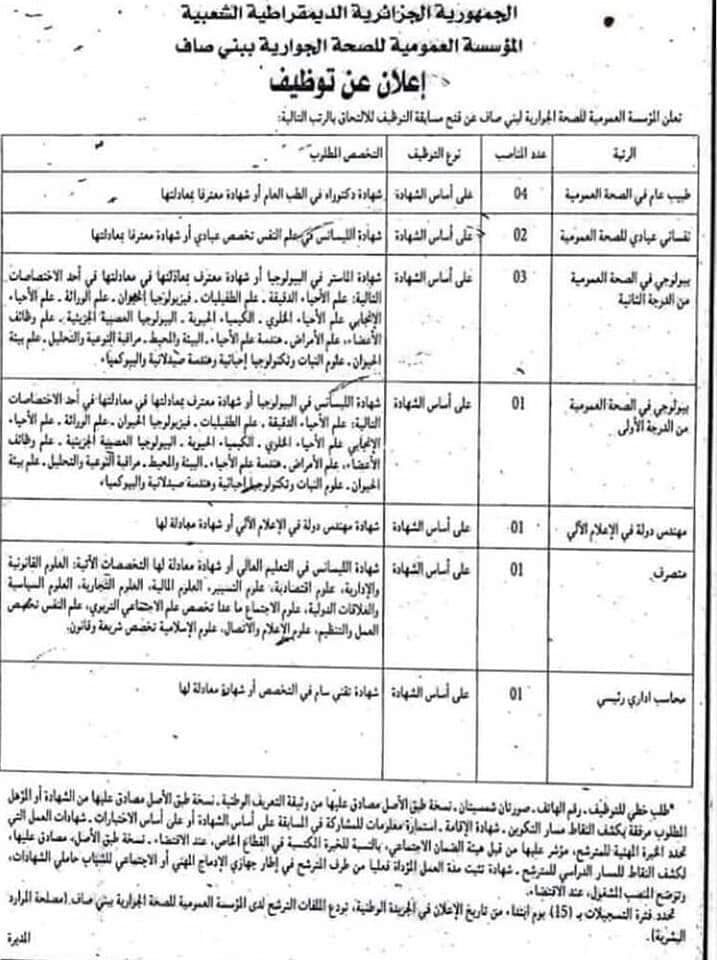 الجمهورية الجزائرية الديمقراطية الشعبية
المؤسسة العمومية للصحة الجوارية ببني صاف
إعلان عن توظيف
تعلن المؤسسة العمومية للصحة الجوارية لبني صاف عن فتح مسابقة التوظيف للالتحاق بالرتب التالية:
الرتبة عدد المناصب نوع التوظيف التخصص المطلوب
طبيب عام في الصحة العمومية 04 على أساس الشهادة شهادة دكتوراه في الطب العام أو شهادة معترفا بمعادلتها
نفساني عيادي للصحة العمومية 02 على أساس الشهادة شهادة الليسانس في علم النفس تخصص عيادي أو شهادة معترفا بمعادلتها
بيولوجي في الصحة العمومية من الدرجة الثانية 03 على أساس الشهادة شهادة الماستر في البيولوجيا أو شهادة معترف بمعادلتها في معادلتها في أحد الاختصاصات
التالية: علم الأحياء الدقيقة ـ علم الطفيليات ـ فيزيولوجيا الحيوان ـ علم الوراثة ـ علم الأحياء
الإنجابي علم الأحياء الخلوي ـ الكيمياء الحيوية ـ البيولوجيا العصبية الجزيئية ـ علم وظائف
الأعضاء، علم الأمراض ـ هندسة علم الأحياء ـ البيئة والمحيط ـ مراقبة النوعية والتحليل ـ علم بيئة
الحيوان ـ علوم النبات وتكنولوجيا إحيائية وهندسة صيدلانية والبيوكمياء
بيولوجي في الصحة العمومية من الدرجة الأولى 01 على أساس الشهادة شهادة الليسانس في البيولوجيا أو شهادة معترف بمعادلتها في معادلتها في أحد الاختصاصات
التالية: علم الأحياء الدقيقة ـ علم الطفيليات ـ فيزيولوجيا الحيوان ـ علم الوراثة ـ علم الأحياء
الإنجابي علم الأحياء الخلوي ـ الكيمياء الحيوية ـ البيولوجيا العصبية الجزيئية ـ علم وظائف
الأعضاء، علم الأمراض ـ هندسة علم الأحياء ـ البيئة والمحيط ـ مراقبة النوعية والتحليل ـ علم بيئة
الحيوان ـ علوم النبات وتكنولوجيا إحيائية وهندسة صيدلانية والبيوكمياء
مهندس دولة في الإعلام الآلي 01 على أساس الشهادة شهادة مهندس دولة في الإعلام الآلي أو شهادة معادلة لها
متصرف 01 على أساس الشهادة شهادة الليسانس في التعليم العالي أو شهادة معادلة لها التخصصات الآتية: العلوم القانونية
والإدارية، علوم اقتصادية، علوم التسيير، العلوم المالية، العلوم التجارية، العلوم السياسية
والعلاقات الدولية، علوم الاجتماع ما عدا تخصص علم الاجتماعي التربوي، علم النفس تخصص
العمل والتنظيم، علوم الإعلام والاتصال، علوم الإسلامية تخصص شريعة وقانون.
محاسب اداري رئيسي 01 على أساس الشهادة شهادة تقني سام في التخصص أو شهادة معادلة لها
*طلب خطي للتوظيف ـ رقم الهاتف ـ صورتان شمسيتان ـ نسخة طبق الأصل مصادق عليها من وثيقة التعريف الوطنية ـ نسخة طبق الأصل مصادق عليها من الشهادة أو المؤهل
المطلوب مرفقة بكشف النقاط مسار التكوين ـ شهادة الإقامة ـ استمارة معلومات للمشاركة في المسابقة على أساس الشهادة أو على أساس الاختبارات ـ شهادات العمل التي
تحدد الخبرة المهنية للمترشح، مؤشر عليها من قبل هيئة الضمان الاجتماعي، بالنسبة للخبرة المكتسبة في القطاع الخاص، عند الاقتضاء ـ نسخة طبق الأصل، مصادق عليها،
لكشف النقاط للمسار الدراسي للمترشح ـ شهادة تثبت مدة العمل المؤداة فعليا من طرف المترشح في إطار جهازي الإدماج المهني أو الاجتماعي للشباب حاملي الشهادات،
وتوضح المنصب المشغول، عند الاقتضاء.
تحدد فترة التسجيلات بـ (15) يوم ابتداء من تاريخ الإعلان في الجريدة الوطنية، تودع الملفات الترشح لدى المؤسسة العمومية للصحة الجوارية ببني صاف (مصلحة الموارد
البشرية).
المديرة